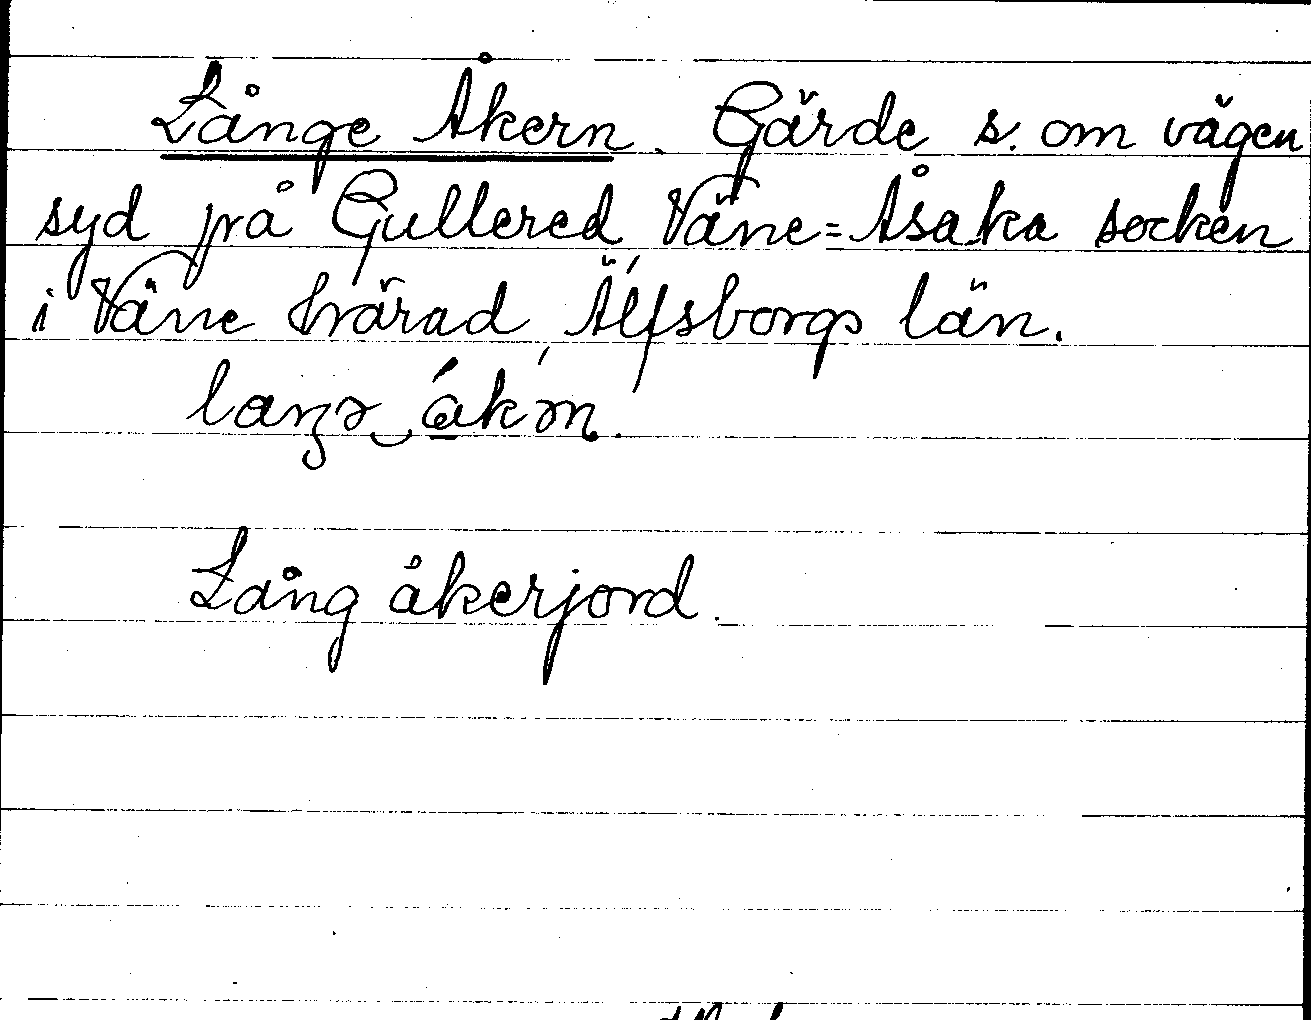 Långe Åkern. Gärde s. om vägen
syd på Gullered, Väne=Åsaka socken
i Väne härad, Älfsborgs län.
Lång åkerjord.